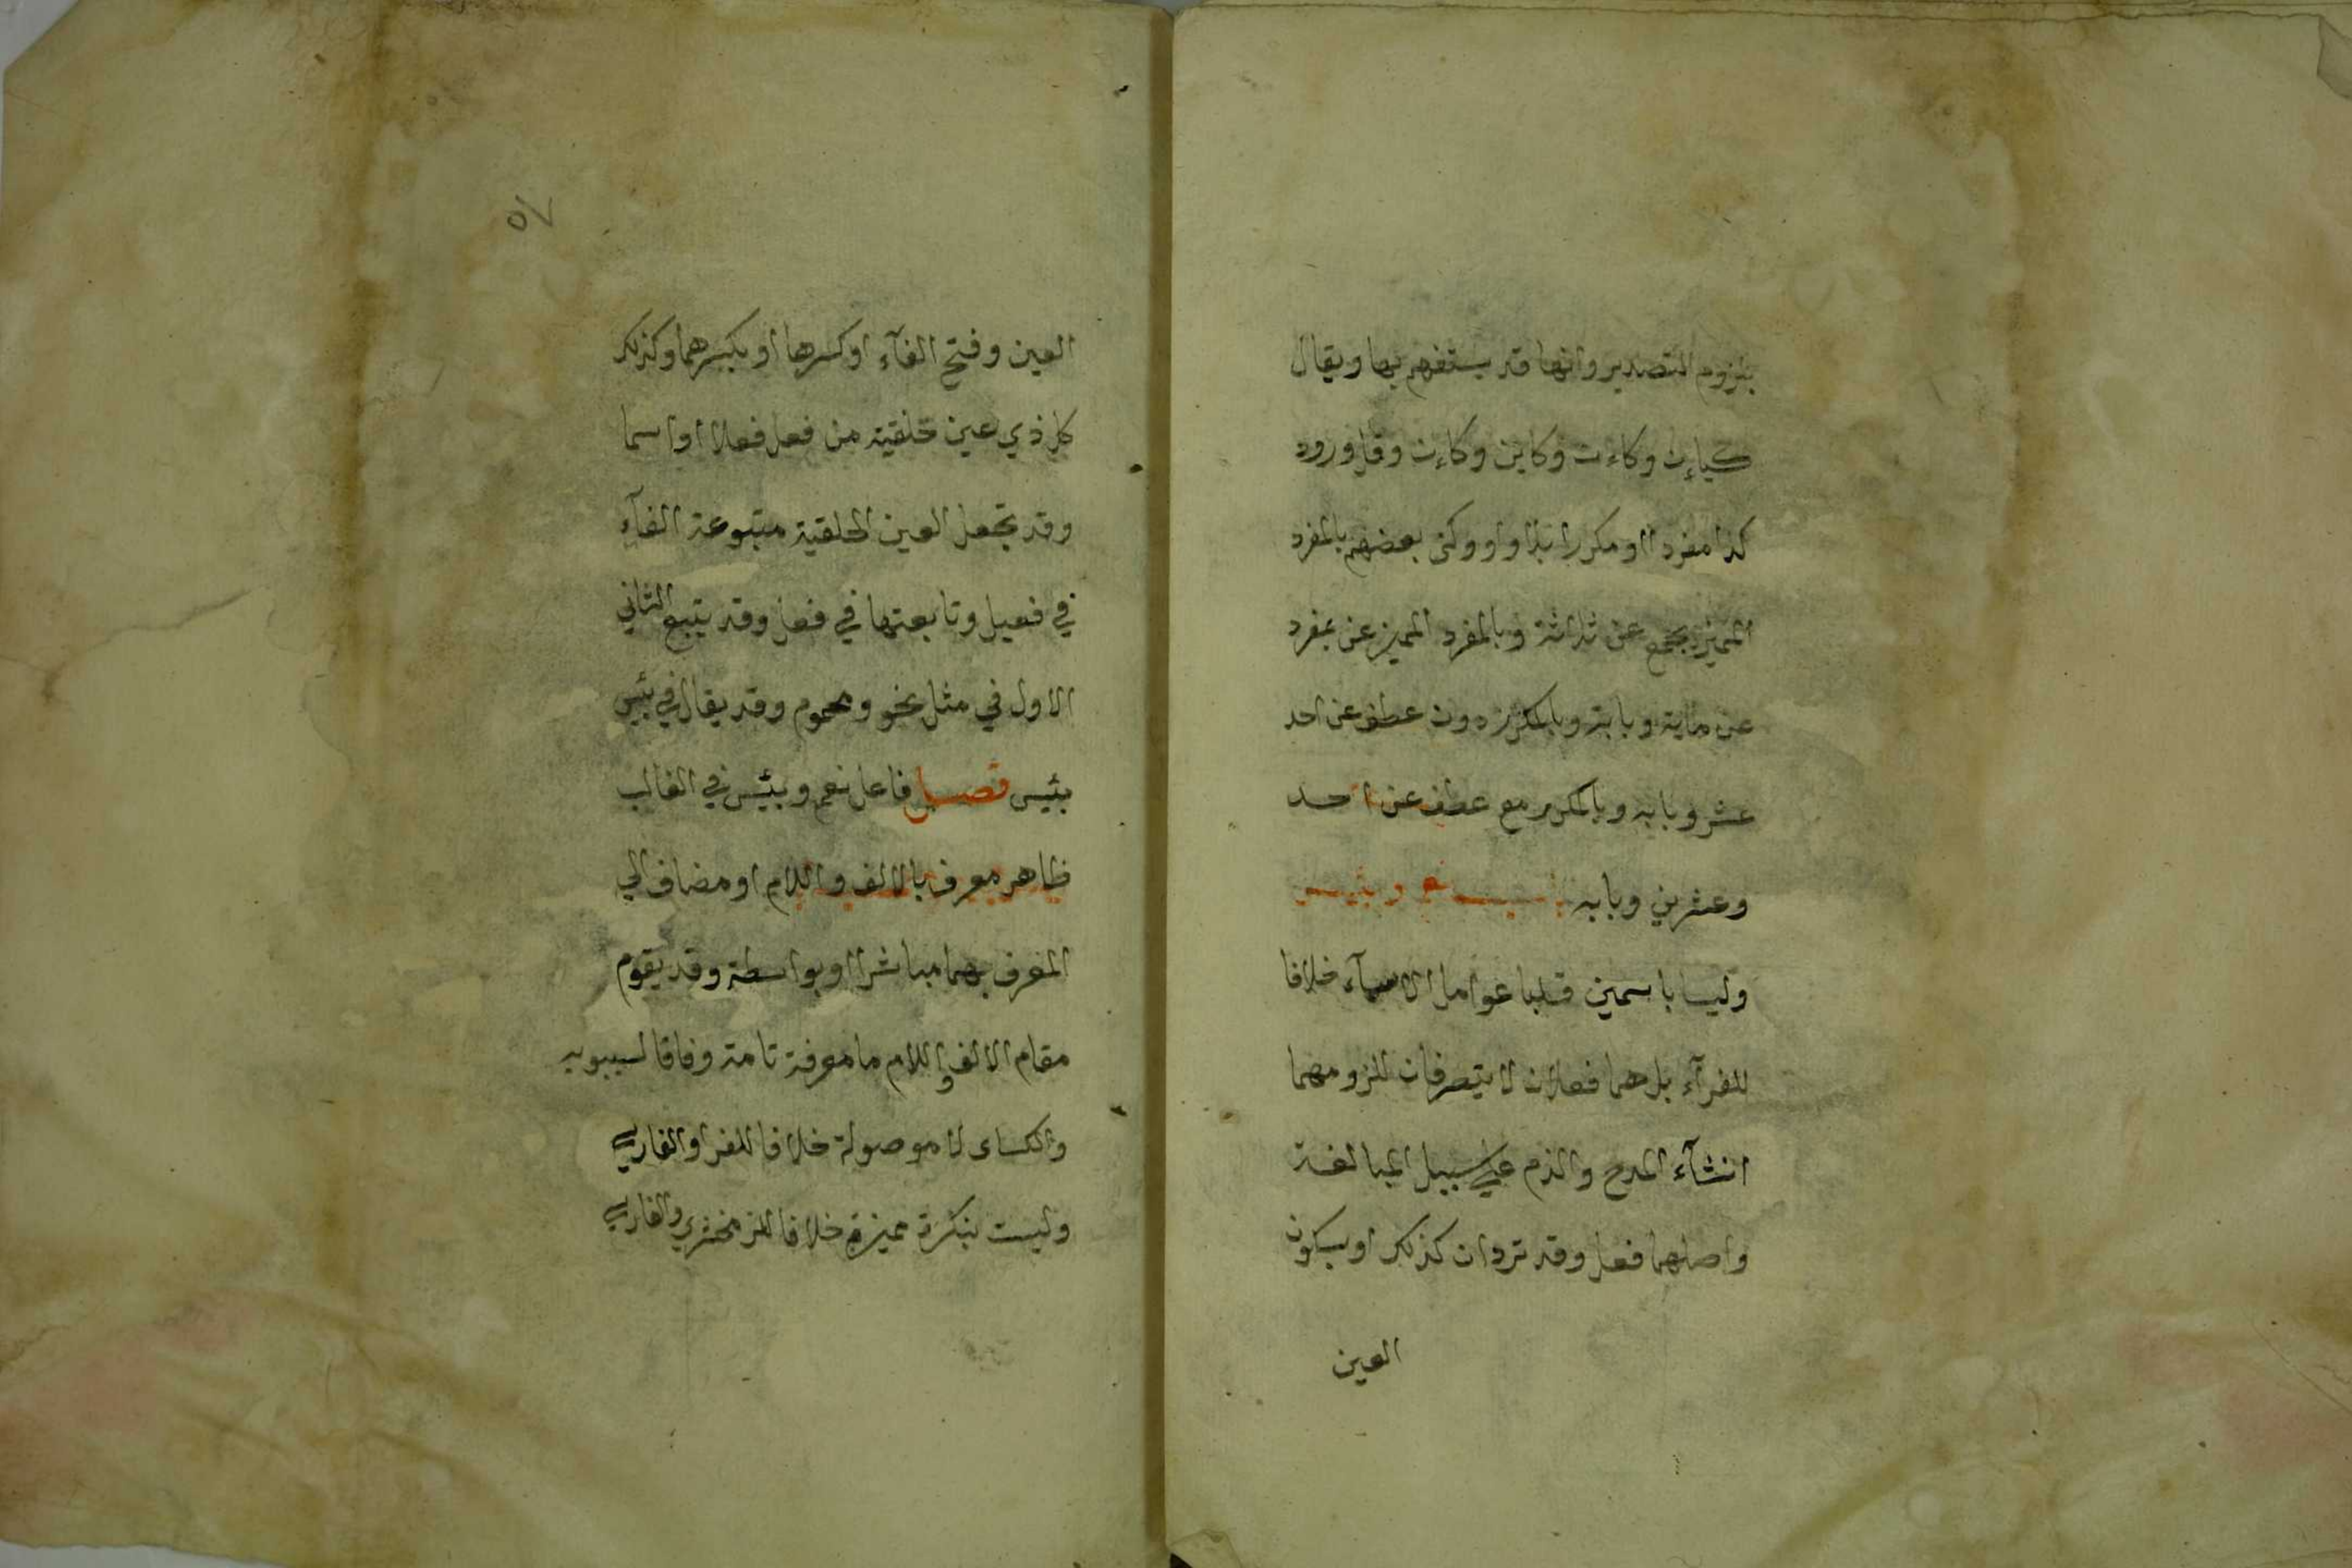 بلزوم التصدير وانها قد يستفهم بها ويقال
كياءن وكاءن وكاين وكاءن وقل ورود
كذا مفردا او مكررا بلا واو وكنى بعضهم بالمفرد
المميز بجمع عن ثلاثة وبالمفرد المميز عن بمفرد
عن ماية وبابه وبالمكرر دون عطف عن احد
عشر وبابه وبالمكرر مع عطف عن احد
وعشرين وبابه باب نعم وبئس
وليسا باسمين قلبا عوامل الاسمآء خلافا
للفرآء بل هما فعلان لا يتصرفان للزومهما
انشآء المدح والذم على سبيل المبالغة
واصلهما فعل وقد تردان كذلك او بسكون
العين
٥٧
العين وفتح الفآء او كسرها او بكسرهما وكذلك
كل ذي عين حلقية من فعل فعلا او اسما
وقد تجعل العين الحلقية متبوعة الفآء
في فعيل وتابعتها في فعل وقد يتبع الثاني
الاول في مثل نحو ومحموم وقد يقال في بئس
بئيس فصل فاعل نعم وبئس في الغالب
ظاهر معرف بالالف واللام او مضاف الي
المعرف بهما مباشرا او بواسطة وقد يقوم
مقام الالف واللام ما معرفة تامة وفاقا لسيبويه
والكساى لا موصولة خلافا للفرا والفارسي
وليست بنكرة مميزة خلافا للزمخشري والفارسي